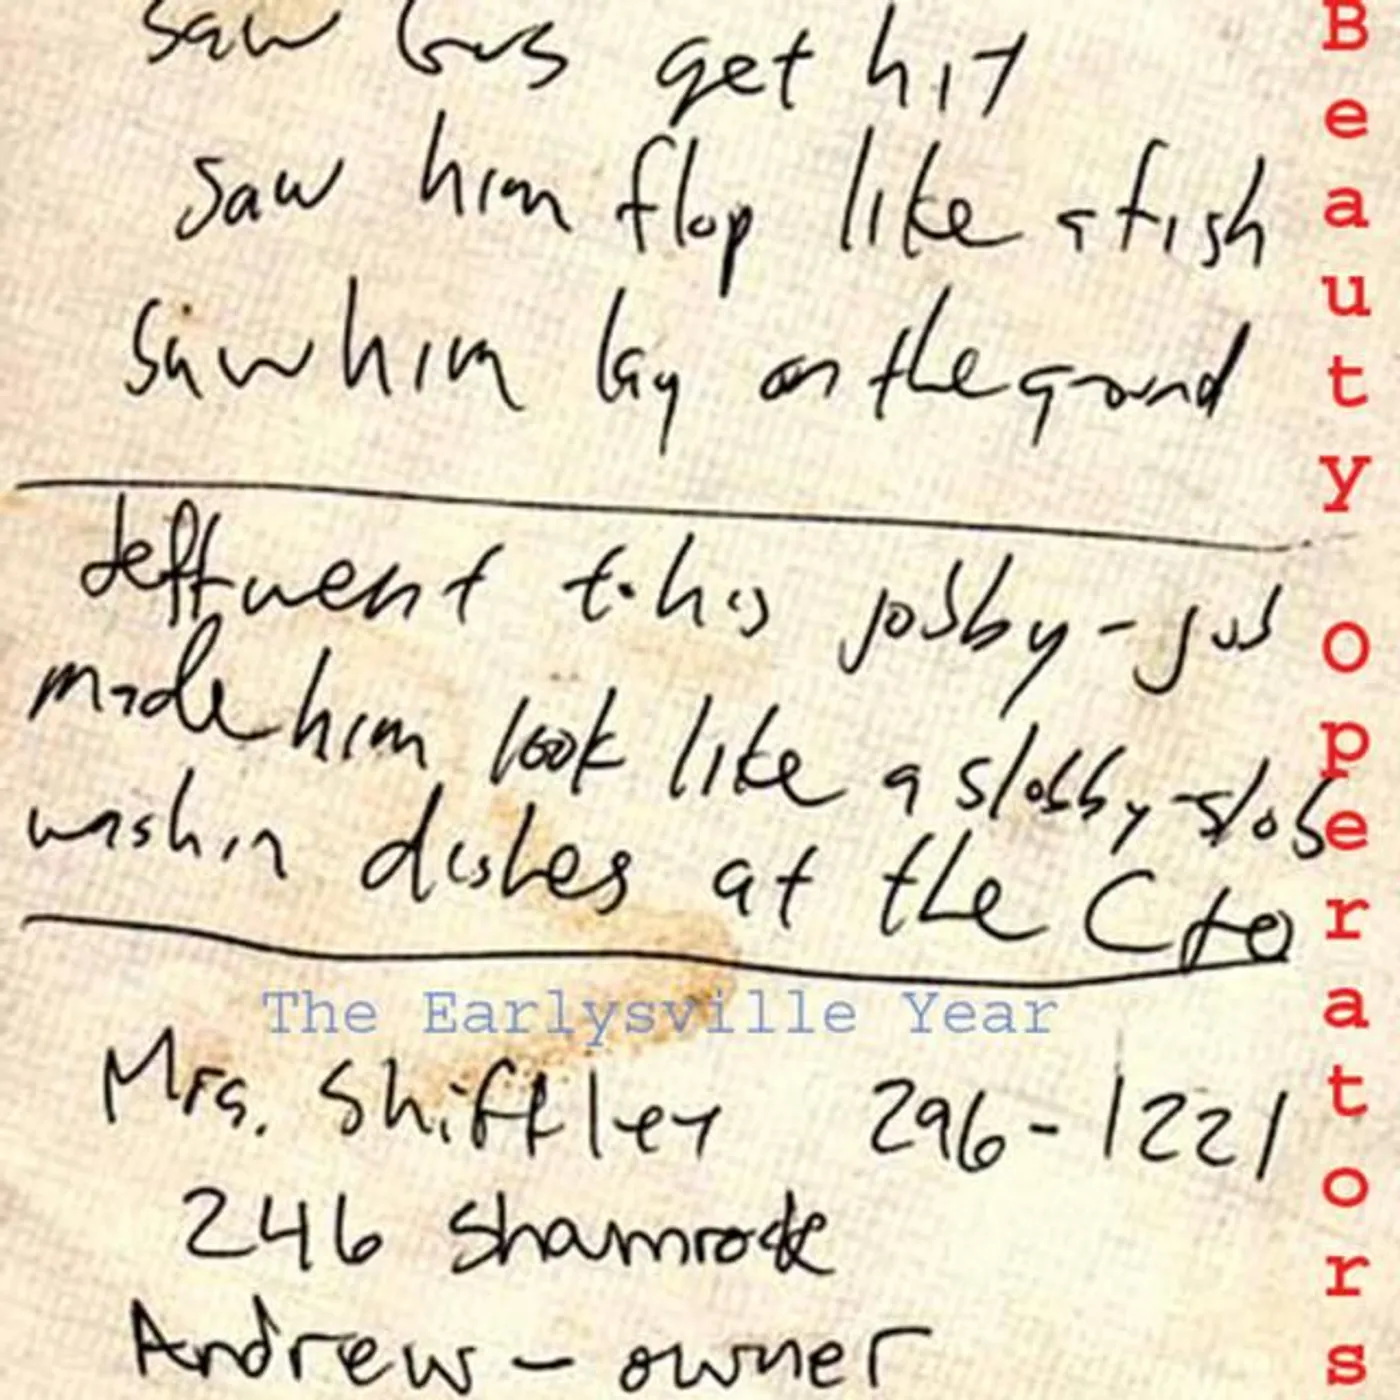 saw Gus get hit
saw him flop like a fish
saw him lay on the ground
Jeff went to his jobby-job
made him look like a slobby-slob
washin dishes at the
The Earlysville Year
Mrs. Shiffler 296-1221
246 Shamrock
Andrew - owner
Beauty Operators